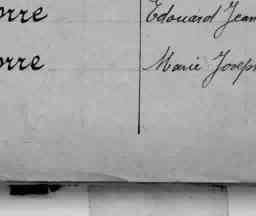 orre Edouard Jean
orre Marie Joseph